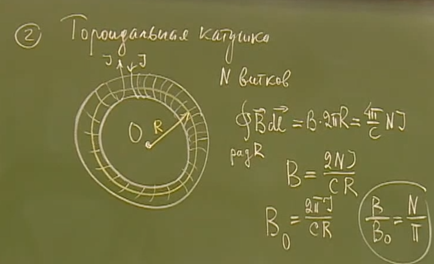 ② Тороидальная катушка
J J
N витков
O R
∮B⃗dl⃗ = B·2πR = 4π/c NJ
рад R
B = 2NJ/cR
B₀ = 2πJ/cR
B/B₀ = N/π